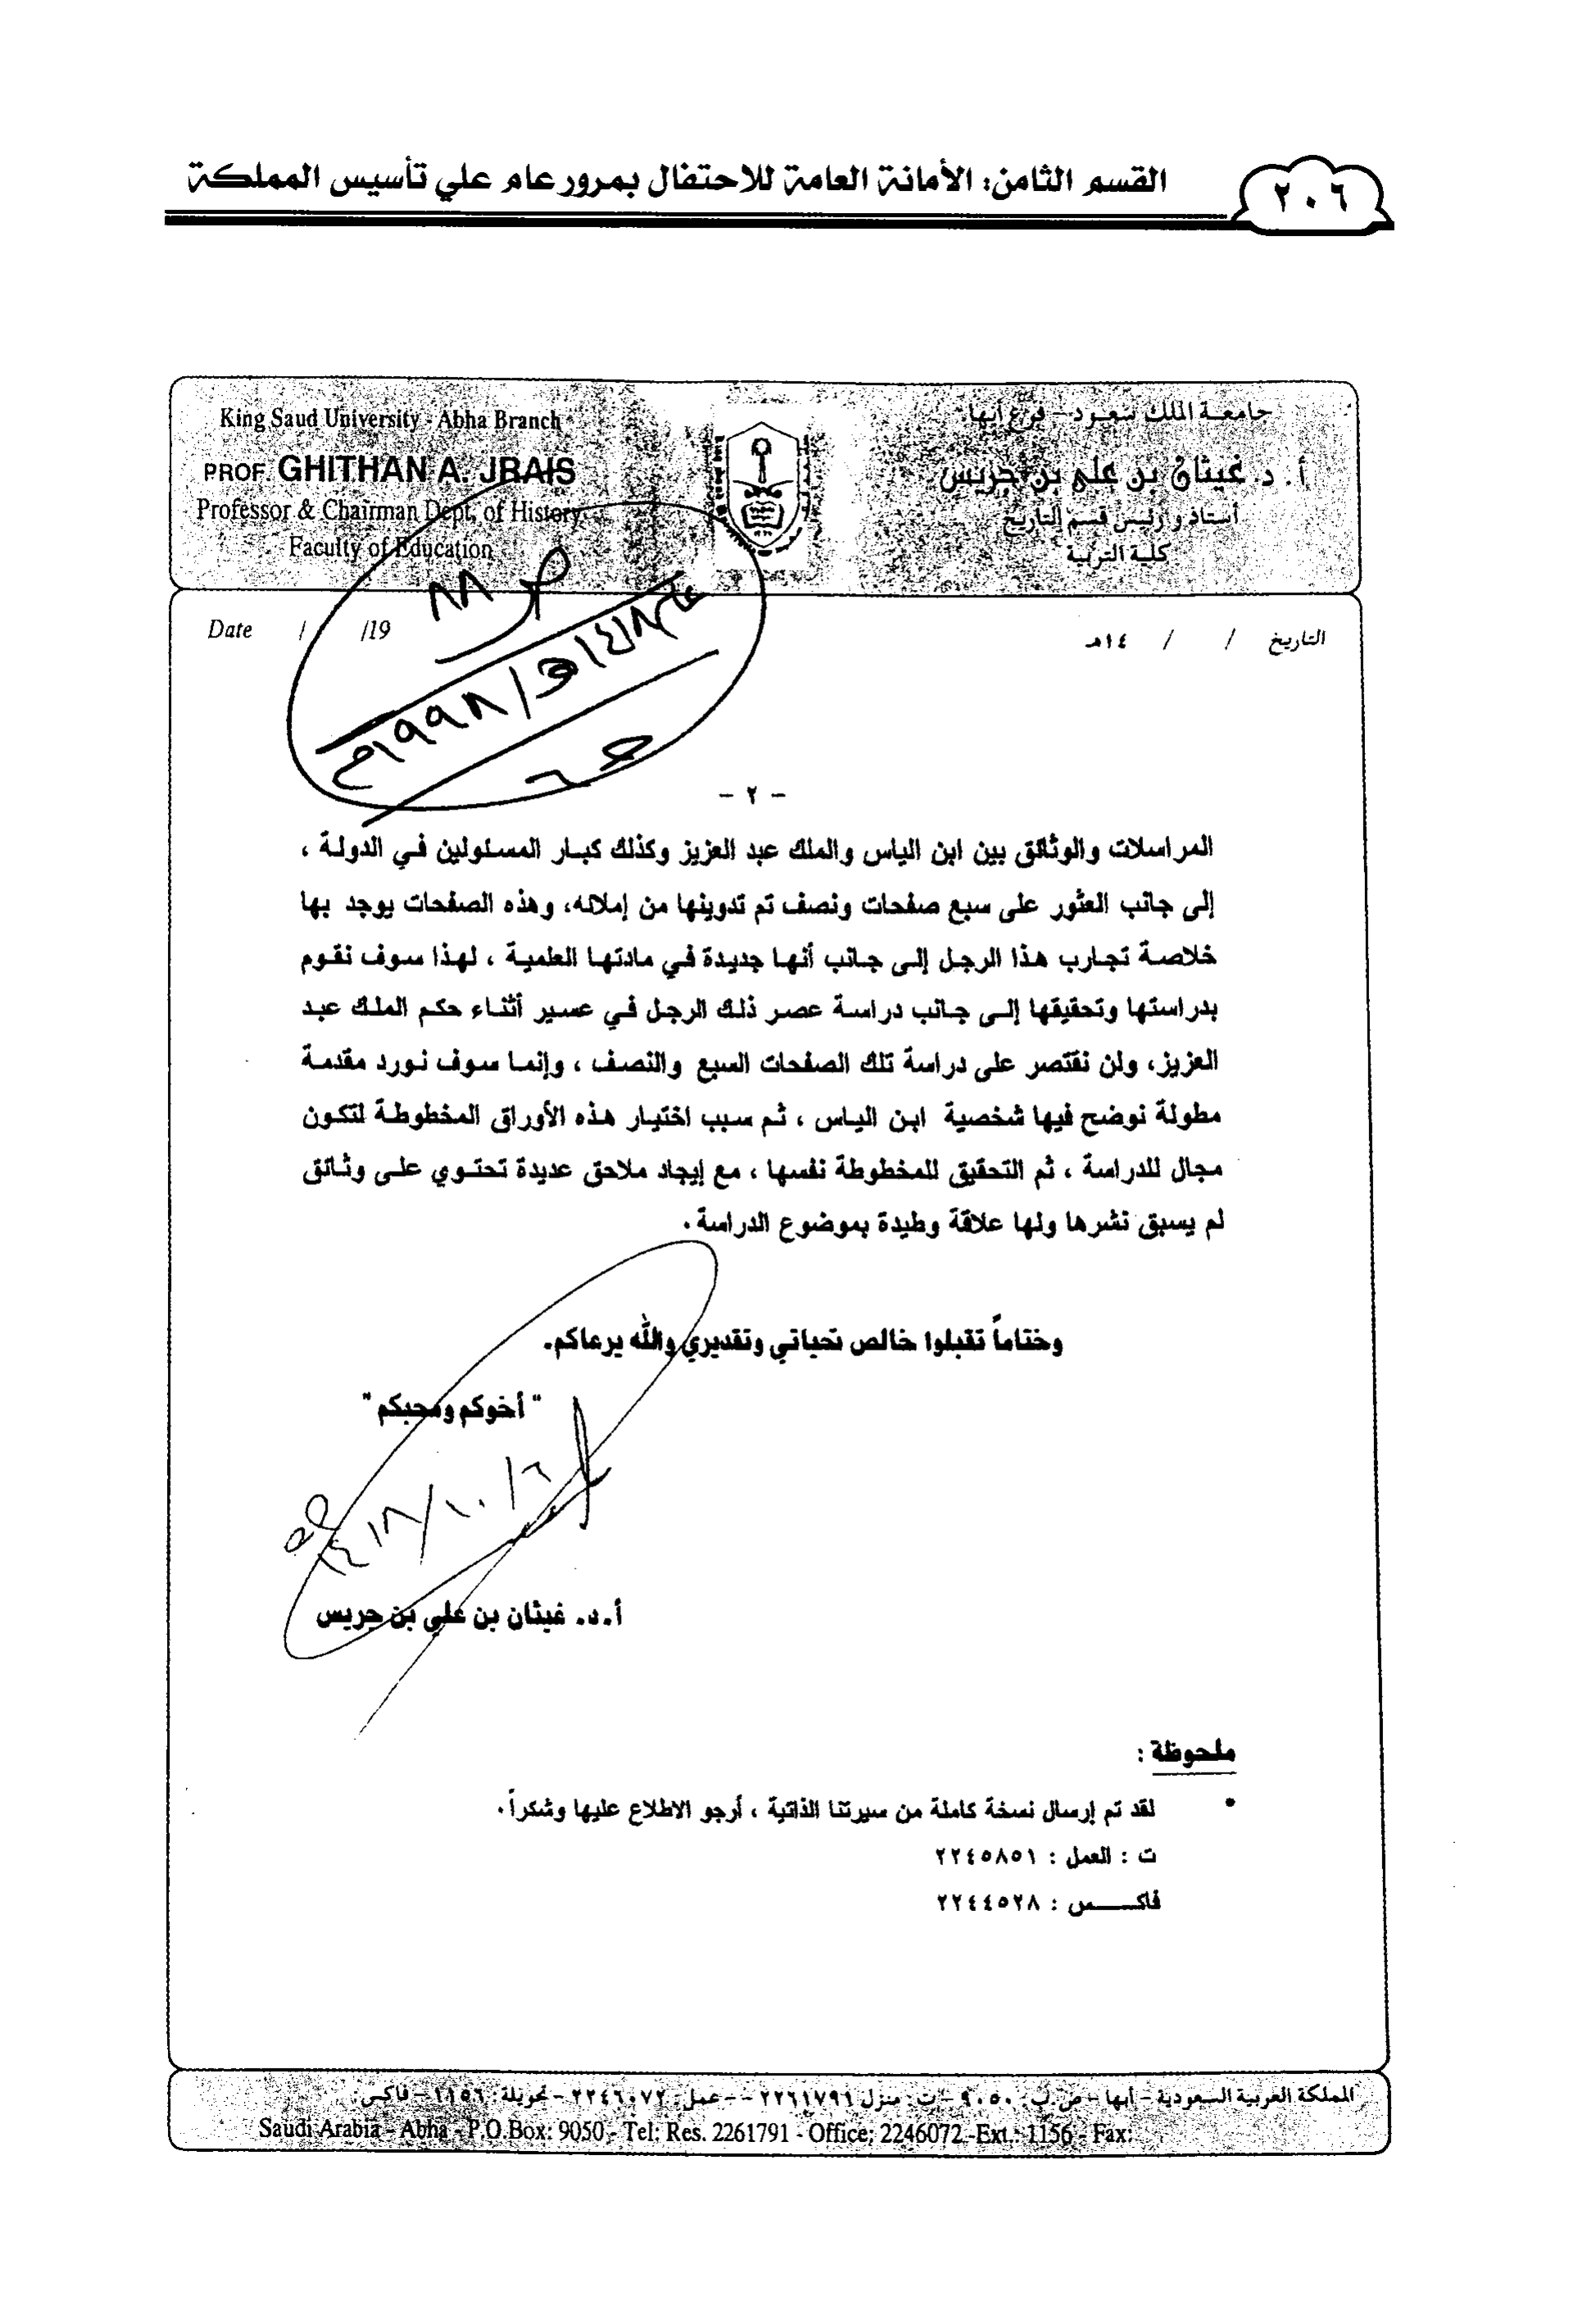 القسم الثامن: الأمانة العامة للاحتفال بمرور عام علي تأسيس المملكة
٢٠٦
King Saud University - Abha Branch
PROF. GHITHAN A. JRAIS
Professor & Chairman Dept. of History
Faculty of Education
جامعة الملك سعود - فرع أبها
أ. د. غيثان بن علي بن جريس
أستاذ و رئيس قسم التاريخ
كلية التربية
Date / /19
التاريخ / / ١٤هـ
٨٨
١٤١٨هـ/١٩٩٨م
- ٢ -
المراسلات والوثائق بين ابن الياس والملك عبد العزيز وكذلك كبار المسئولين في الدولة ،
إلى جانب العثور على سبع صفحات ونصف تم تدوينها من إملائه، وهذه الصفحات يوجد بها
خلاصة تجارب هذا الرجل إلى جانب أنها جديدة في مادتها العلمية ، لهذا سوف نقوم
بدراستها وتحقيقها إلى جانب دراسة عصر ذلك الرجل في عسير أثناء حكم الملك عبد
العزيز، ولن نقتصر على دراسة تلك الصفحات السبع والنصف ، وإنما سوف نورد مقدمة
مطولة نوضح فيها شخصية ابن الياس ، ثم سبب اختيار هذه الأوراق المخطوطة لتكون
مجال للدراسة ، ثم التحقيق للمخطوطة نفسها ، مع إيجاد ملاحق عديدة تحتوي على وثائق
لم يسبق نشرها ولها علاقة وطيدة بموضوع الدراسة.
وختاماً تقبلوا خالص تحياتي وتقديري والله يرعاكم.
" أخوكم ومحبكم "
٦/١٠/١٤١٨هـ
أ.د. غيثان بن علي بن جريس
ملحوظة :
• لقد تم إرسال نسخة كاملة من سيرتنا الذاتية ، أرجو الاطلاع عليها وشكراً.
ت : العمل : ٢٢٤٥٨٥١
فاكـــس : ٢٢٤٤٥٢٨
المملكة العربية السعودية - أبها - ص.ب: ٩٠٥٠ - ت: منزل ٢٢٦١٧٩١ - - عمل: ٢٢٤٦٠٧٢ - تحويلة: ١١٥٦ - فاكس:
Saudi Arabia - Abha - P.O.Box: 9050 - Tel: Res. 2261791 - Office; 2246072 -Ext.: 1156 - Fax: